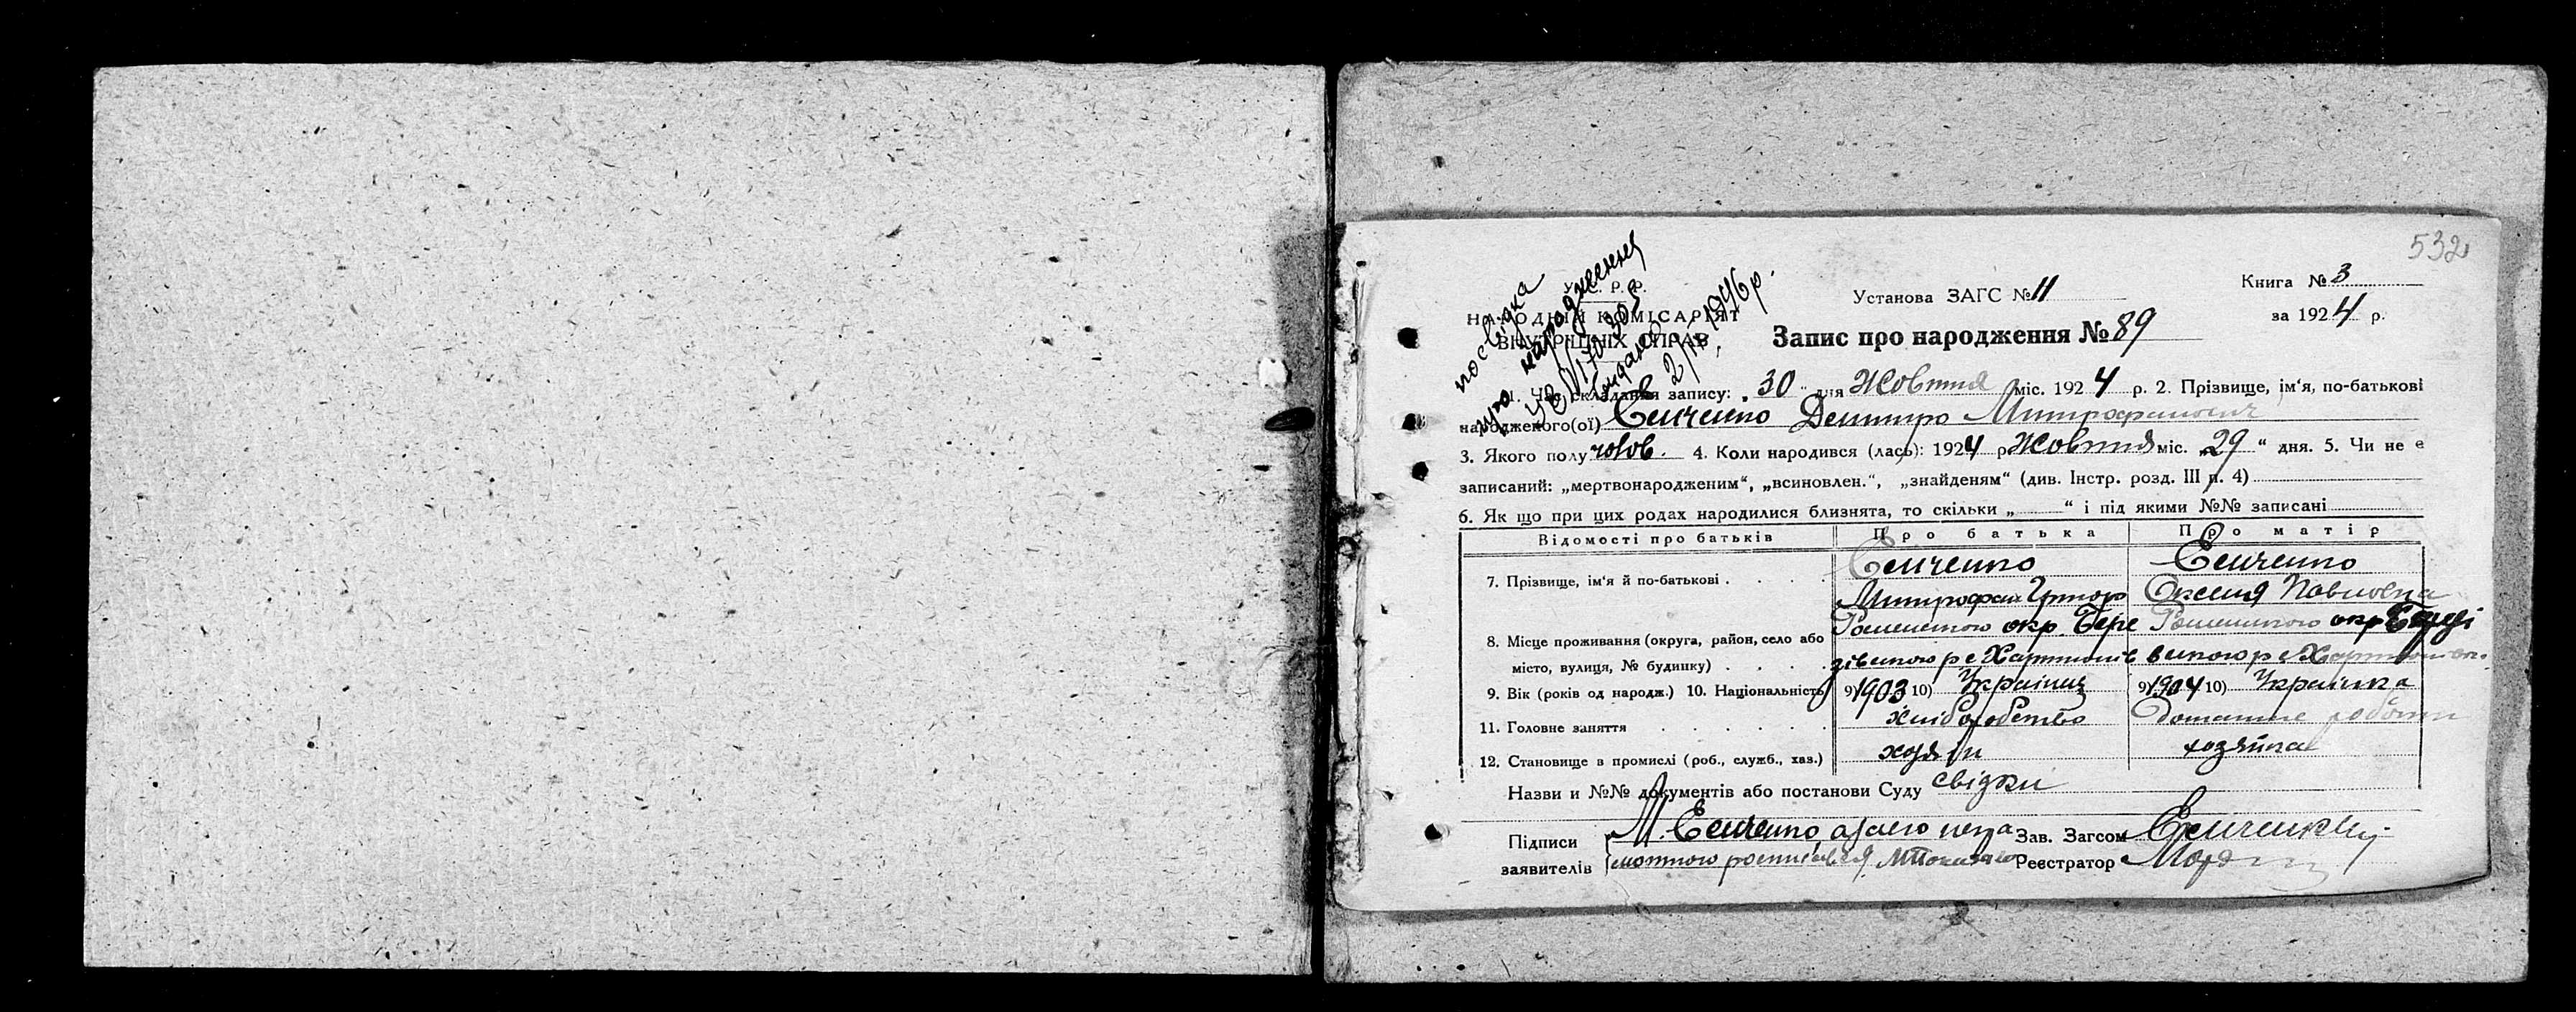 532
посвідка
про народження
УБ №170305
видано
2/IV 1946 р.
У. С. Р. Р.
НАРОДНІЙ КОМІСАРІЯТ
ВНУТРІШНІХ СПРАВ
Установа ЗАГС № 11
Книга № 3
за 1924 р.
Запис про народження № 89
1. Час складання запису: „30“ дня Жовтня міс. 1924 р. 2. Прізвище, ім'я, по-батькові
народженого(ої) Сенченко Дмитро Митрофанович
3. Якого полу чолов. 4. Коли народився (лась): 1924 р Жовтня міс. „29“ дня. 5. Чи не є
записаний: „мертвонародженим“, „всиновлен.“, „знайденям“ (див. Інстр. розд. III п. 4)
6. Як що при цих родах народилися близнята, то скільки „ “ і під якими №№ записані
Відомості про батьків Про батька Про матір
7. Прізвище, ім'я й по-батькові Сенченко Сенченко
Митрофан Оксенія Павловна
8. Місце проживання (округа, район, село або Роменського окр. Бере Роменського окр Березі
місто, вулиця, № будинку) зівського р с Харитонів вського р с Харитонівк.
9. Вік (років од народж.) 10. Національність 9) 1903 10) Українец 9) 1904 10) Українка
11. Головне заняття хліборобство домашне робота
12. Становище в промислі (роб., служб., хаз.) хозяїн хозяйка
Назви и №№ документів або постанови Суду свідки
Підписи М. Сенченко а за его негра Зав. Загсом
заявителів мотного росписався Реєстратор